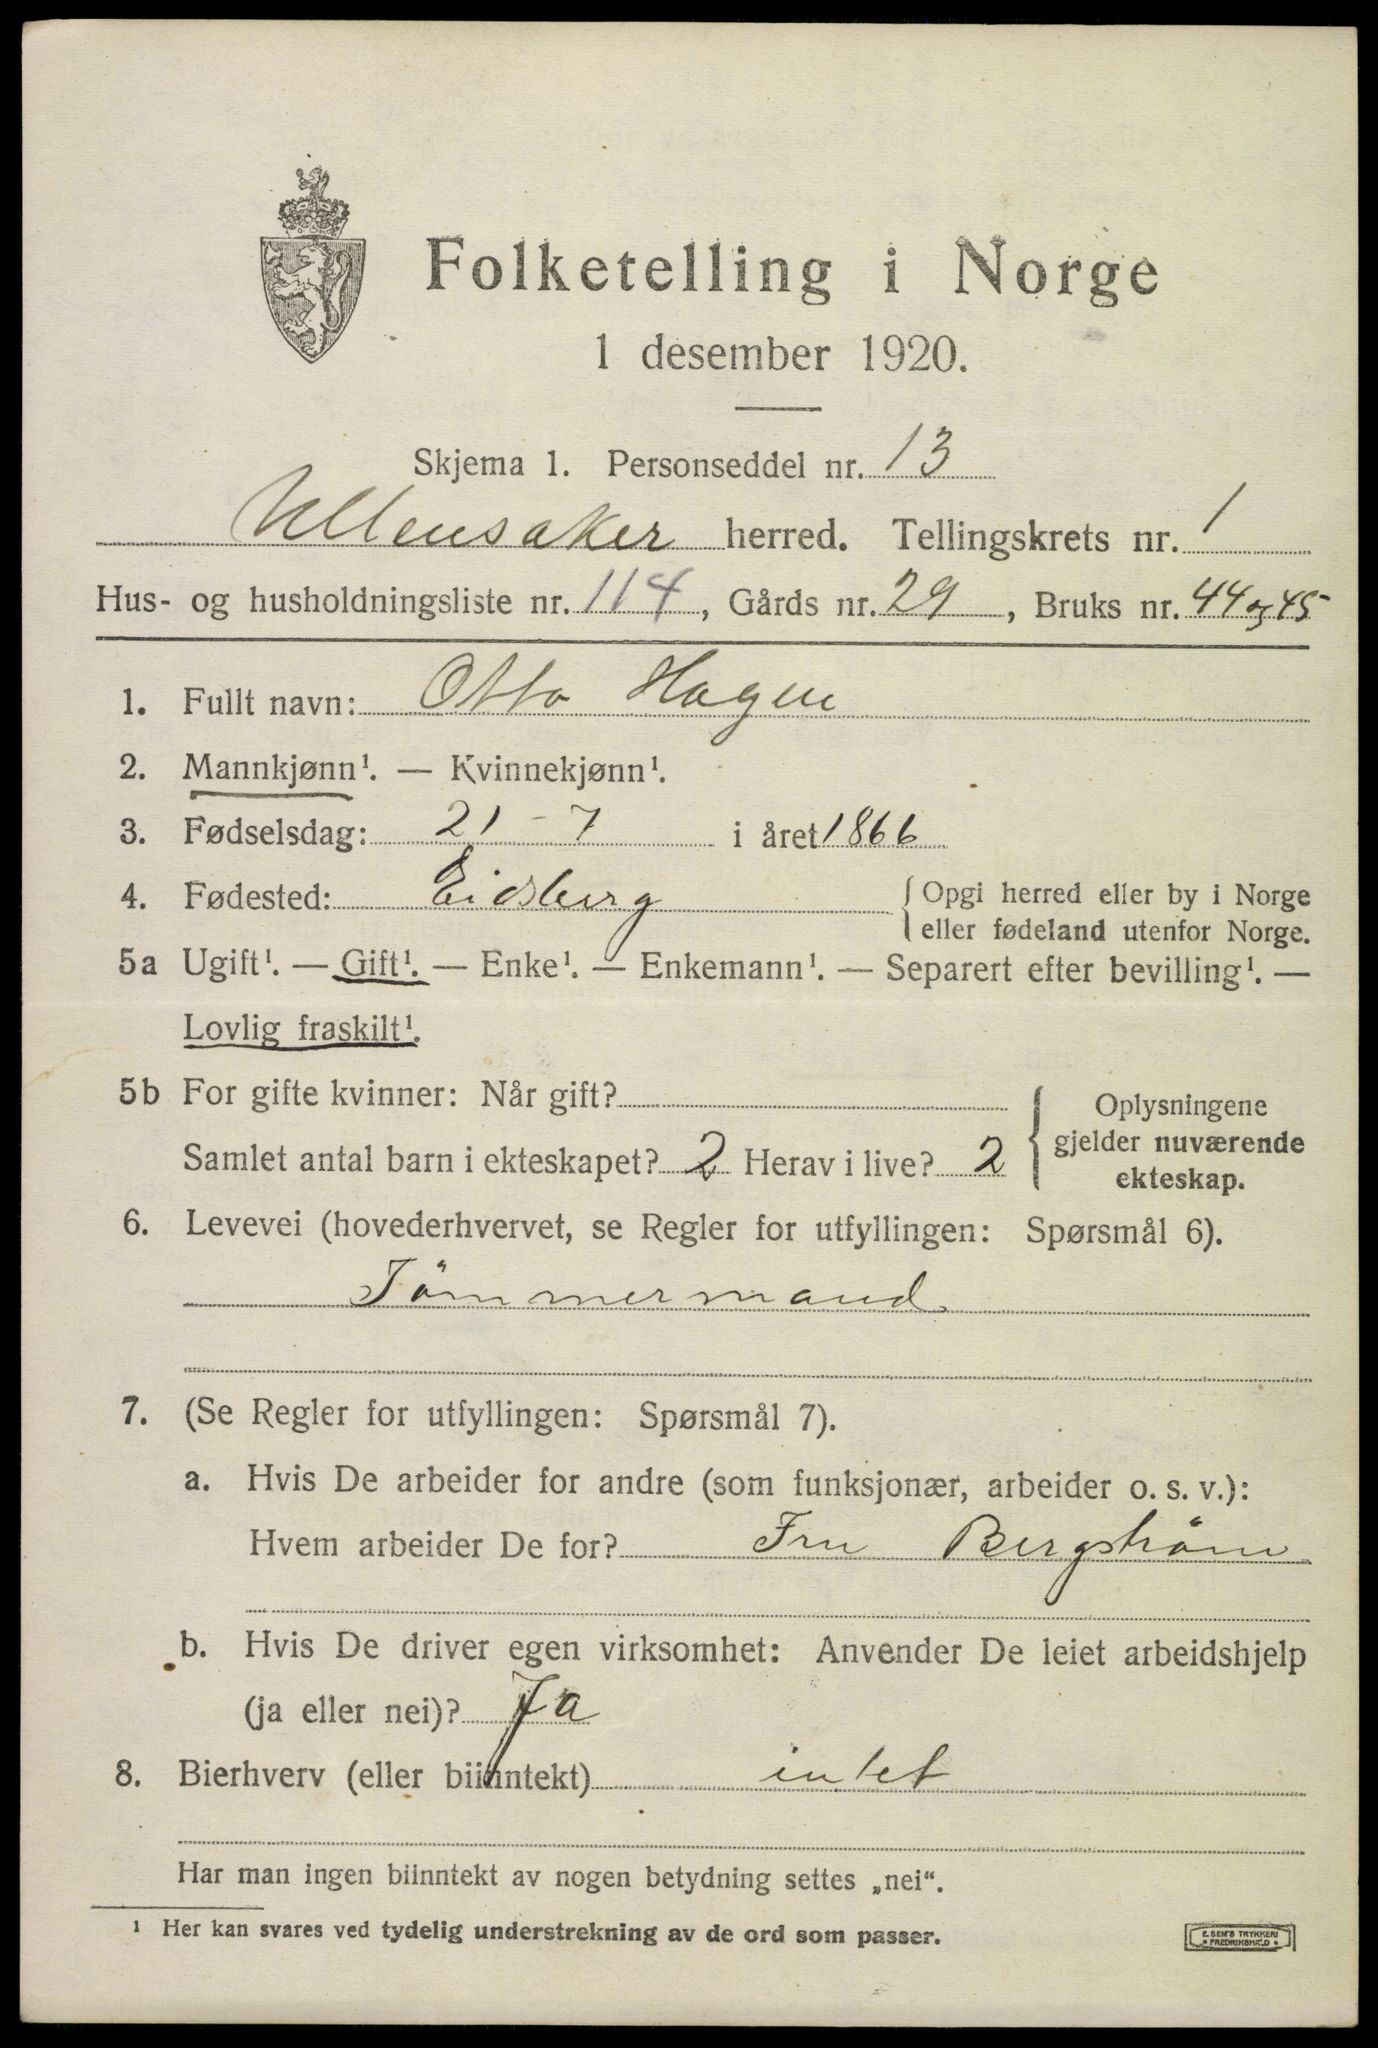 Folketelling i Norge
1 desember 1920.
Skjema 1. Personseddel nr. 13
Ullensaker herred. Tellingskrets nr. 1
Hus- og husholdningsliste nr. 114, Gårds nr. 29, Bruks nr. 44 og 45
1. Fullt navn: Otto Hagen
2. Mannkjønn¹. — Kvinnekjønn¹.
3. Fødselsdag: 21 - 7 i året 1866
4. Fødested: Eidsberg { Opgi herred eller by i Norge
eller fødeland utenfor Norge.
5a Ugift¹. — Gift¹. — Enke¹. — Enkemann¹. — Separert efter bevilling¹. —
Lovlig fraskilt¹.
5b For gifte kvinner: Når gift?
Samlet antal barn i ekteskapet? 2 Herav i live? 2
{ Oplysningene
gjelder nuværende
ekteskap.
6. Levevei (hovederhvervet, se Regler for utfyllingen: Spørsmål 6).
Tömmermand
7. (Se Regler for utfyllingen: Spørsmål 7).
a. Hvis De arbeider for andre (som funksjonær, arbeider o. s. v.):
Hvem arbeider De for? Fru Bergström
b. Hvis De driver egen virksomhet: Anvender De leiet arbeidshjelp
(ja eller nei)? Ja
8. Bierhverv (eller biinntekt) intet
Har man ingen biinntekt av nogen betydning settes „nei“.
¹ Her kan svares ved tydelig understrekning av de ord som passer.
E. SEM'S TRYKKERI
• FREDRIKSHALD •